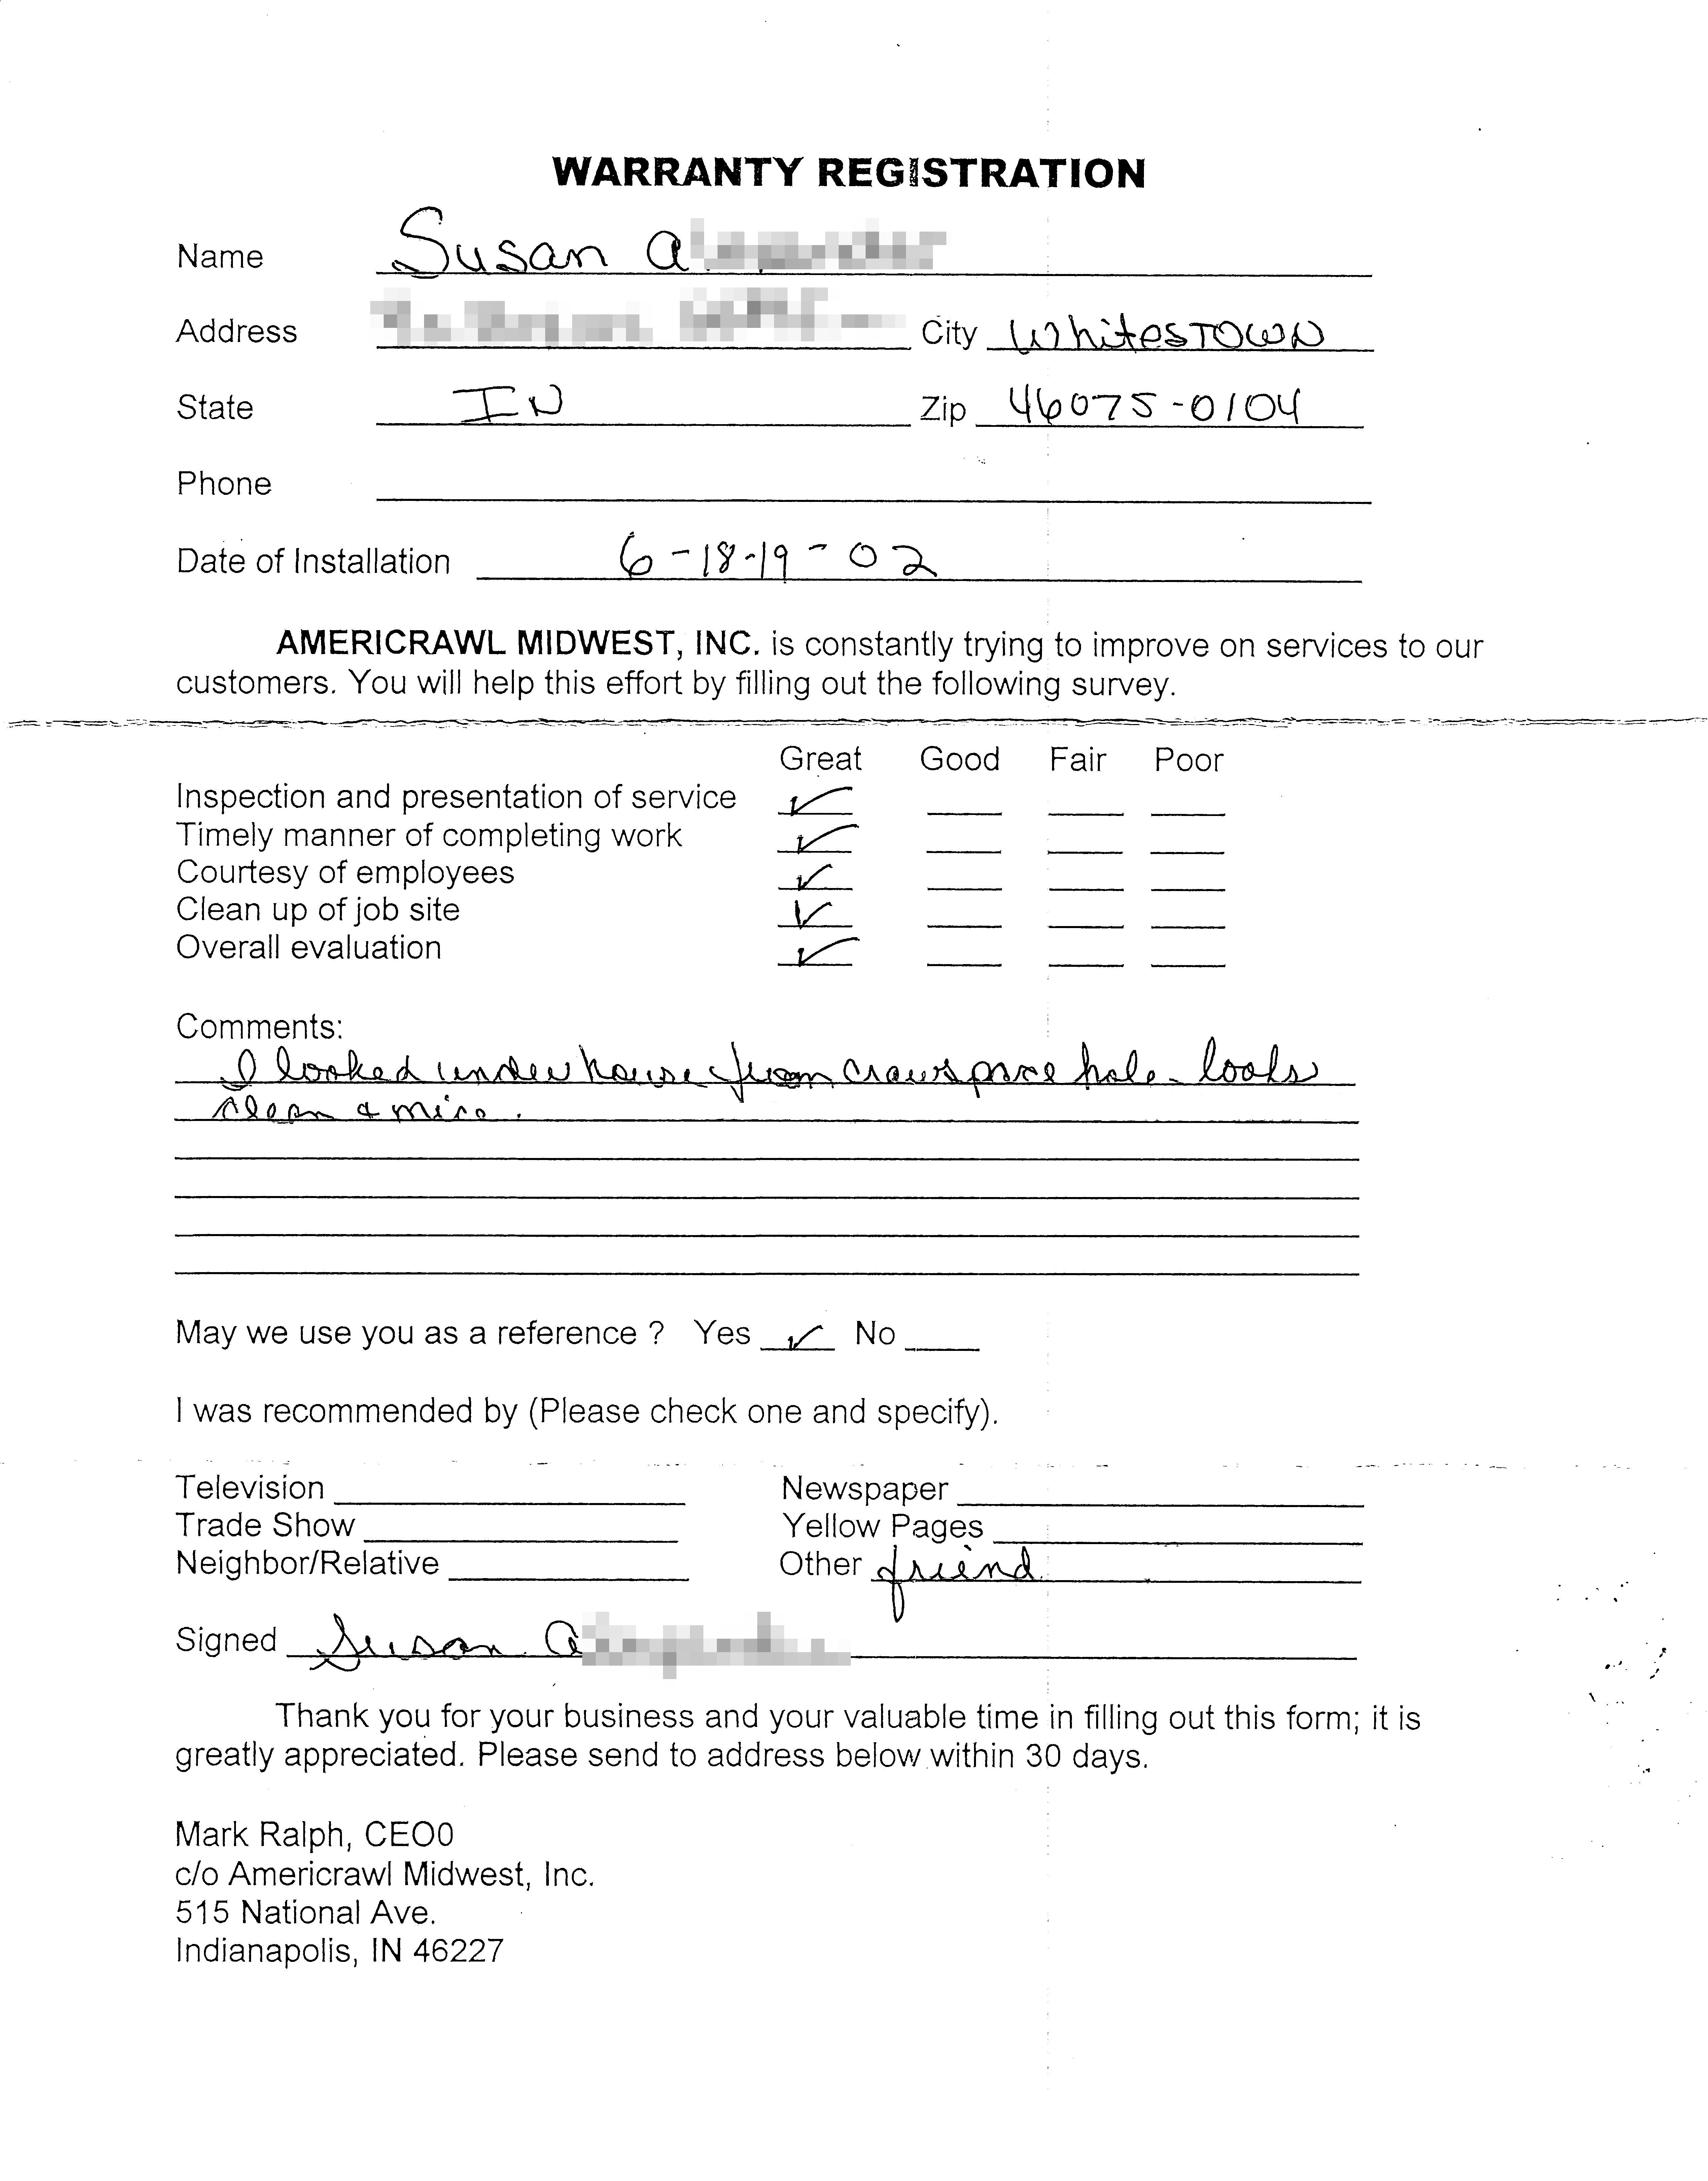 WARRANTY REGISTRATION
Name Susan A
Address City WhitesTOWN
State IN Zip 46075-0104
Phone
Date of Installation 6-18-19-02
AMERICRAWL MIDWEST, INC. is constantly trying to improve on services to our
customers. You will help this effort by filling out the following survey.
Great Good Fair Poor
Inspection and presentation of service ✓
Timely manner of completing work ✓
Courtesy of employees ✓
Clean up of job site ✓
Overall evaluation ✓
Comments:
I looked under house from crawspace hole - looks
clean & nice.
May we use you as a reference ? Yes ✓ No
I was recommended by (Please check one and specify).
Television Newspaper
Trade Show Yellow Pages
Neighbor/Relative Other friend
Signed Susan A
Thank you for your business and your valuable time in filling out this form; it is
greatly appreciated. Please send to address below within 30 days.
Mark Ralph, CEO0
c/o Americrawl Midwest, Inc.
515 National Ave.
Indianapolis, IN 46227